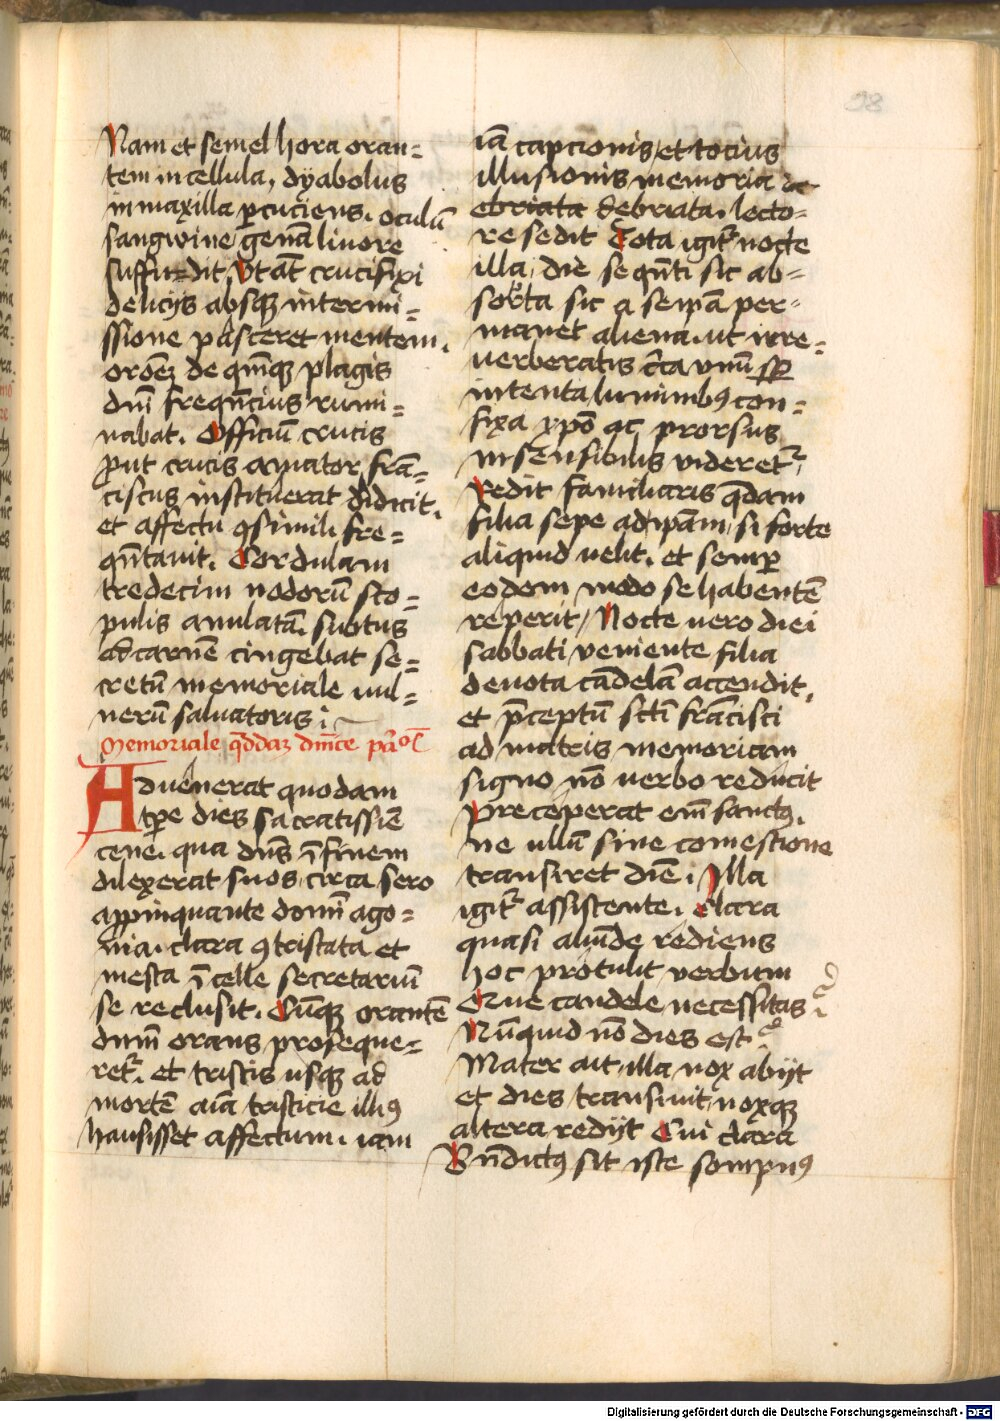 98
Nam et semel hora oran=
tem in cellula, dyabolus
in maxilla ꝑcuciens. oculū
sangwine / genā livore
suffu=dit, Vt aūt crucifixi
delicijs absqꝫ intermi=
ssione pasceret mentem.
orōeꝫ de qūiqꝫ plagis
dnī freqn̄cius rumi=
nabat. Officiū crucis
ꝓut crucis amator frā=
ciscus instituerat didicit.
et affectu ꝯsimili fre=
qn̄tauit. Cordulam
tredecim nodorū sco=
pulis anulatā subtus
ad carnē cingebat se=
cretū memoriale uul=
nerū saluatoris
Memoriale qd̄daꝫ dm̄ce
Aduenerat quodam
tꝑe dies sacratissīe
cene. qua dn̄s ī finem
dilexerat suos, circa sero
aꝓpinquante domī ago=
nia. clara ꝯtristata et
mesta ī celle secretariū
se reclusit. Cūqꝫ orantē
dnm̄ orans proseque=
ret᷑. et tristis usqꝫ ad
mortē aīa tristicie illiꝰ
hausisset affectum. iam
iā capcionis et tocius
illusionis memoria de
ebriata debriata. lecto=
re sedit Tota igit᷑ nocte
illa, die seqn̄ti sic ab=
sorta sic a seip̄a per=
manet aliena. ut irre=
uerberatis c̄ca vnū sꝑ
intenta luminibꝰ con=
fixa xp̄o ac prorsus
insensibilis videret᷑,
Redit familiaris qd̄am
filia sepe ad ip̄am, si forte
aliquid uelit. et semꝑ
eodem modo se habentē
reperit / Nocte uero diei
sabbati veniente filia
deuota cādelā accendit,
et p̄ceptū sctī frācisci
ad matris memoriam
signo nō verbo reducit
Preceperat em̄ sanctꝰ.
ne ullū sine comestione
transiret diē. Illa
igit᷑ assistente. Clara
quasi aliūde rediens
hoc protulit verbum
Que candele necessitas
Nūquid nō dies est.
Mater ait, illa, nox abijt
et dies transiuit, noxqꝫ
altera redijt Cui clara
Bn̄dictꝰ sit iste sompnꝰ
Digitalisierung gefördert durch die Deutsche Forschungsgemeinschaft - DFG